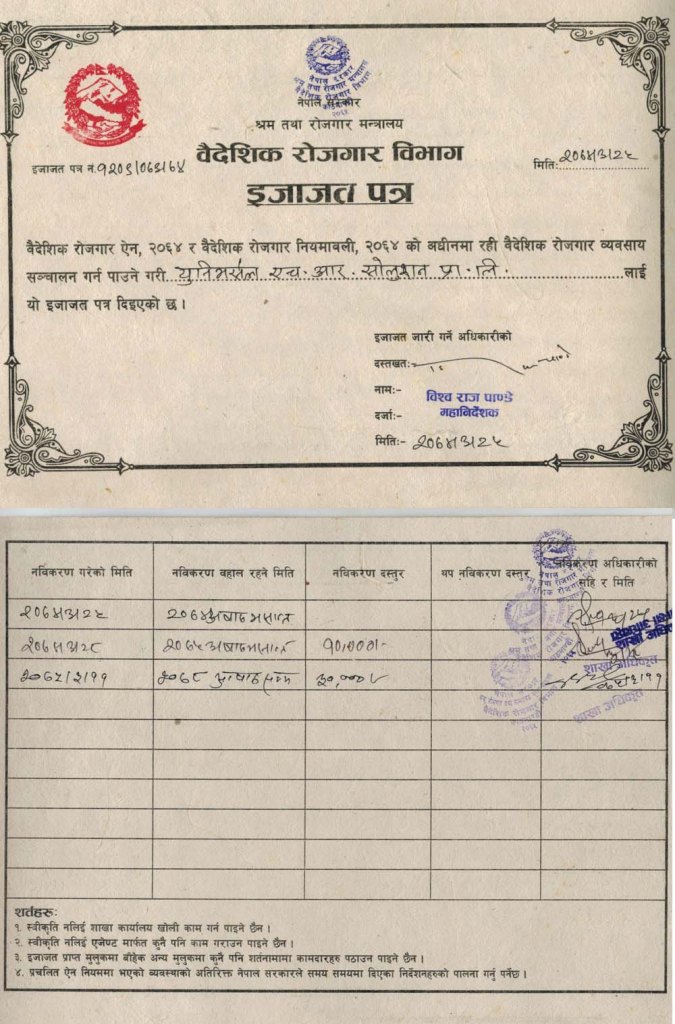 नेपाल सरकार
श्रम तथा रोजगार मन्त्रालय
वैदेशिक रोजगार विभाग
इजाजत पत्र नं.
मिति:
इजाजत पत्र
वैदेशिक रोजगार ऐन, २०६४ र वैदेशिक रोजगार नियमावली, २०६४ को अधीनमा रही वैदेशिक रोजगार व्यवसाय
सञ्चालन गर्न पाउने गरी युनिभर्सल एच. आर. सोलुशन प्रा. लि. लाई
यो इजाजत पत्र दिइएको छ ।
इजाजत जारी गर्ने अधिकारीको
दस्तखत:-
नाम:- विश्व राज पाण्डे
दर्जा:- महानिर्देशक
मिति:-
नविकरण गरेको मिति नविकरण वहाल रहने मिति नविकरण दस्तुर थप नविकरण दस्तुर नविकरण अधिकारीको
सहि र मिति
१०,०००।-
शाखा अधिकृत
शाखा अधिकृत
शर्तहरु:
१. स्वीकृति नलिई शाखा कार्यालय खोली काम गर्न पाइने छैन ।
२. स्वीकृति नलिई एजेण्ट मार्फत कुनै पनि काम गराउन पाइने छैन ।
३. इजाजत प्राप्त मुलुकमा बाहेक अन्य मुलुकमा कुनै पनि शर्तनामामा कामदारहरु पठाउन पाइने छैन ।
४. प्रचलित ऐन नियममा भएको व्यवस्थाको अतिरिक्त नेपाल सरकारले समय समयमा दिएका निर्देशनहरुको पालना गर्नु पर्नेछ ।